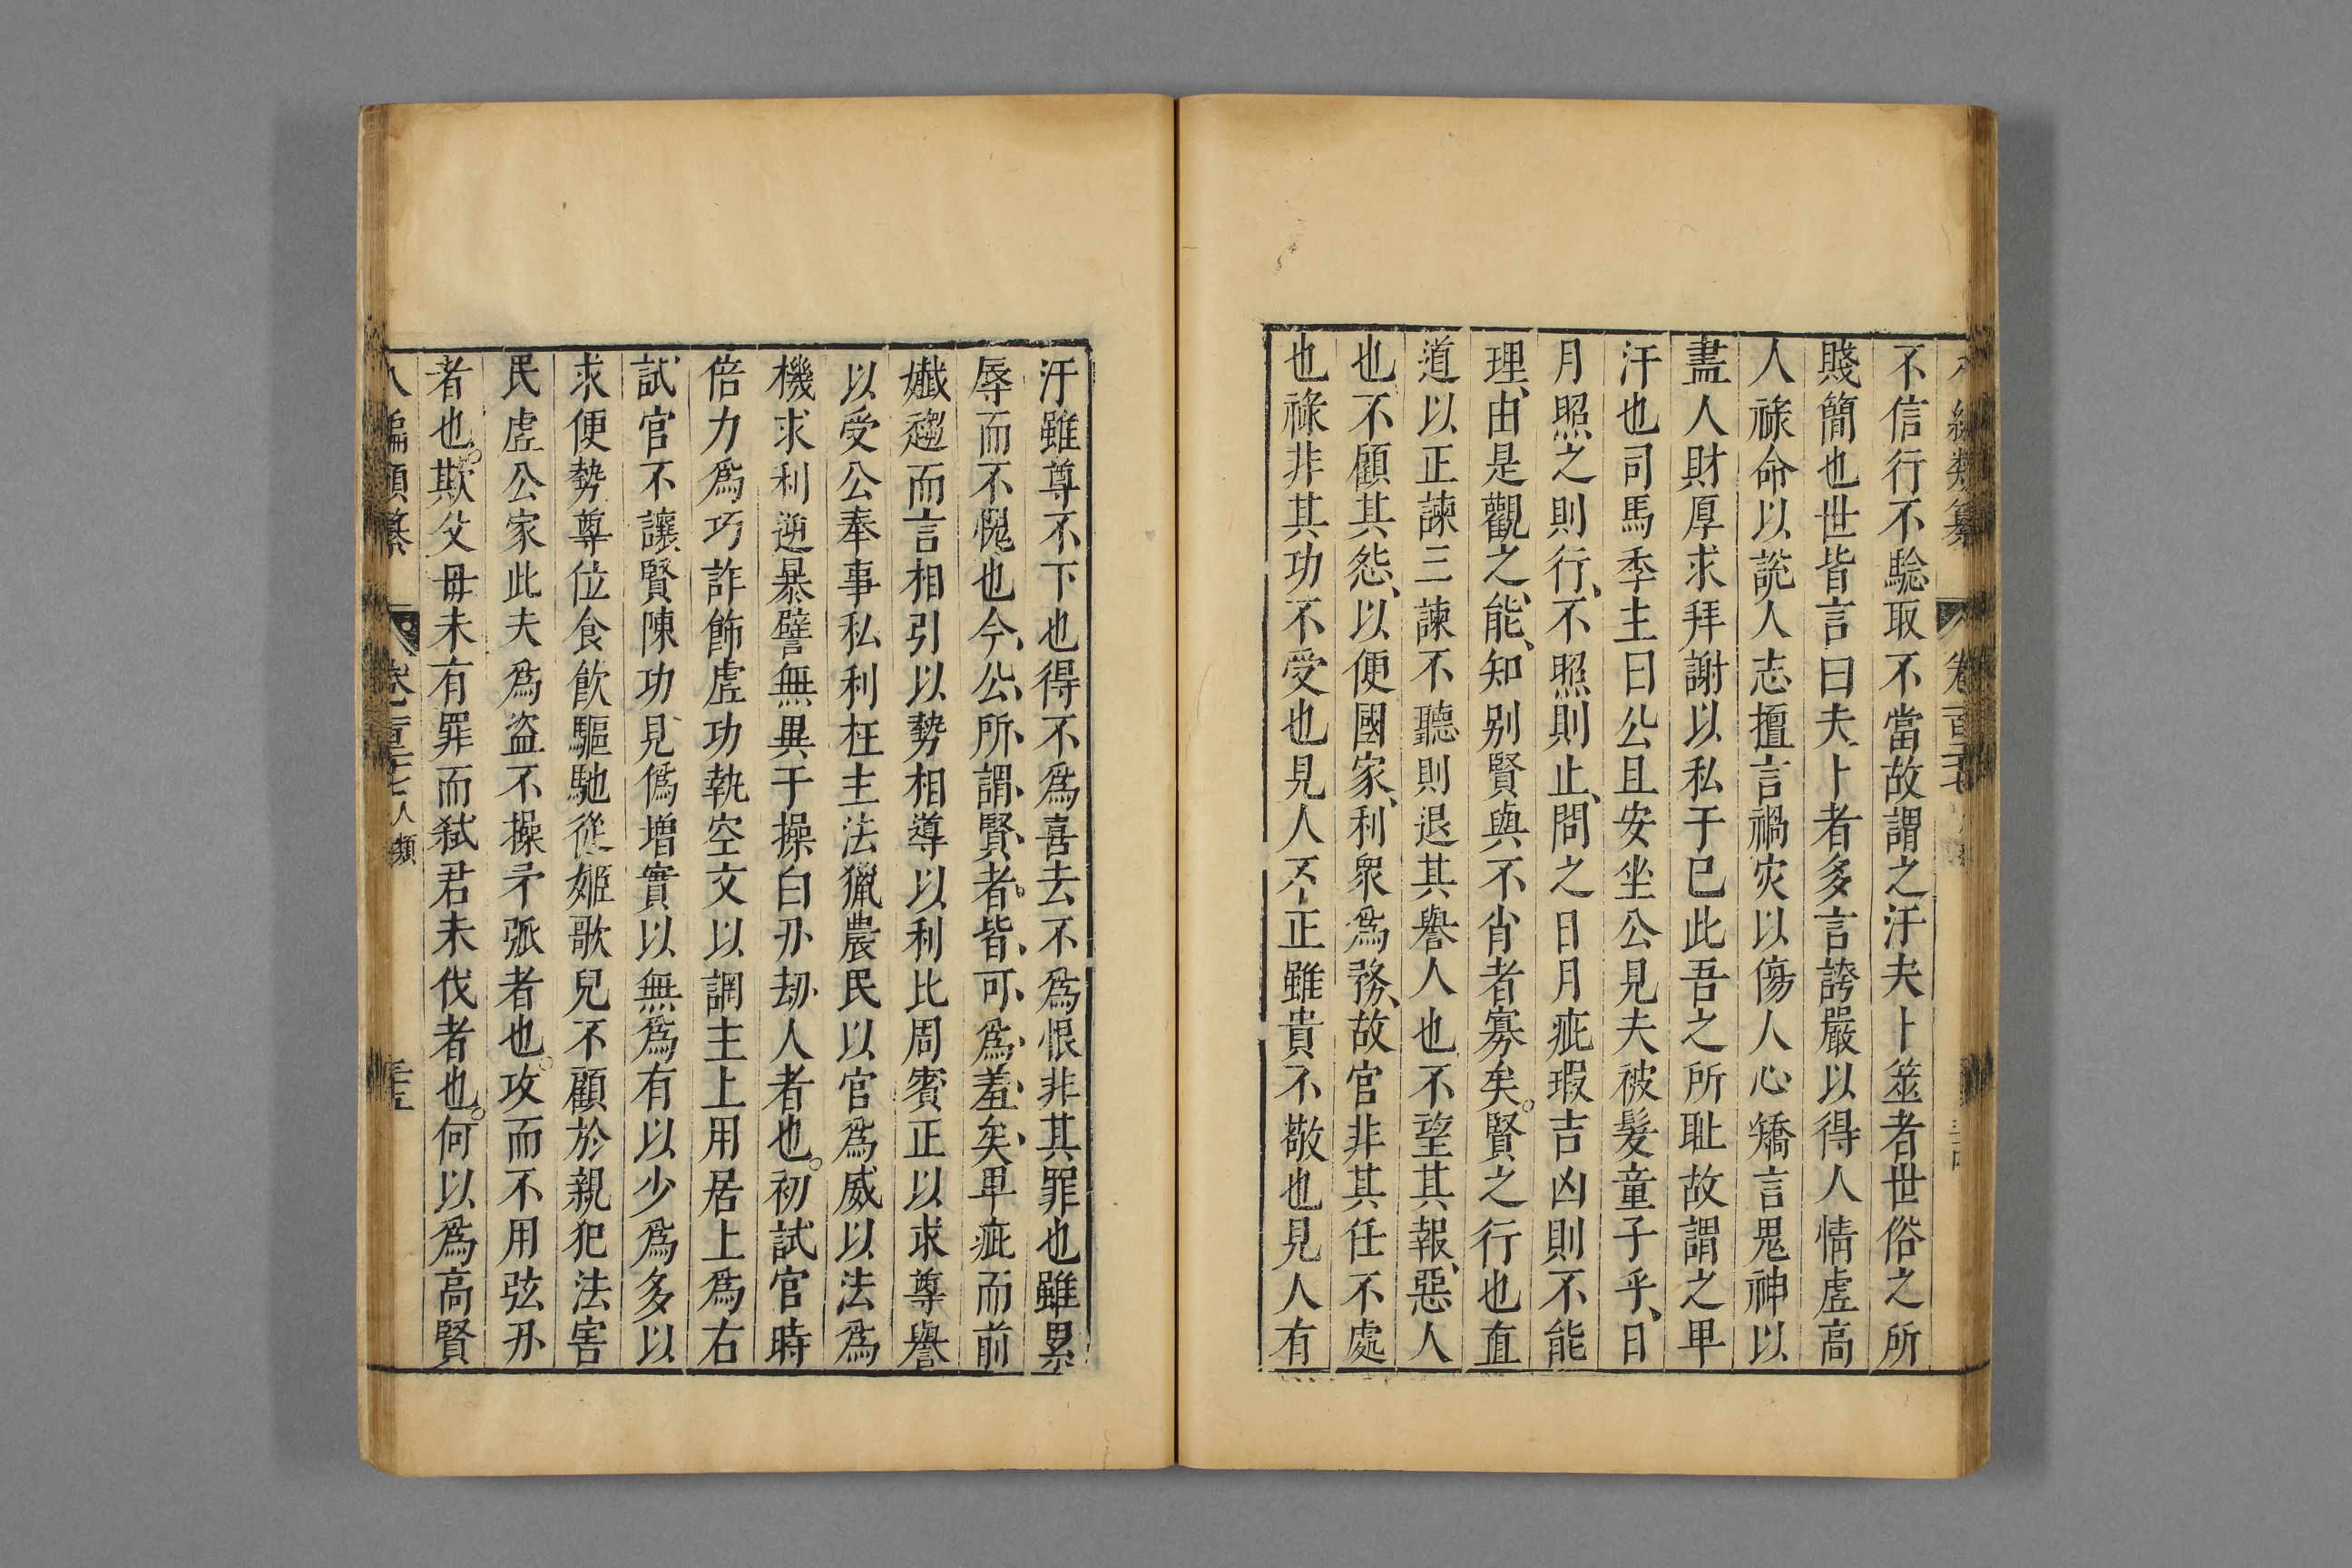 不信行不驗取不當故謂之汙夫卜筮者世俗之所
賤簡也世皆言曰夫卜者多言誇嚴以得人情虛高
人祿命以說人志擅言禍灾以傷人心矯言鬼神以
盡人財厚求拜謝以私于已此吾之所耻故謂之卑
汙也司馬季主曰公且安坐公見夫被髮童子乎、日
月照之則行、不照則止、問之日月疵瑕吉凶則不能
理、由是觀之、能、知别賢與不肖者寡矣。賢之行也直
道以正諫三諫不聽則退其譽人也不望其報、惡人
也、不顧其怨、以便國家、利衆爲務、故官非其任不處
也祿非其功不受也見人不正雖貴不敬也見人有
汙雖尊不下也得不爲喜去不爲恨非其罪也雖累
辱而不愧也今、公、所、謂、賢、者、皆、可、爲、羞、矣、卑疵而前
孅趨而言相引以勢相導以利比周賓正以求尊譽
以受公奉事私利枉主法獵農民以官爲威以法爲
機求利逆暴譬無異于操白刃劫人者也。初試官時
倍力爲巧詐飾虛功執空文以誷主上用居上爲右
試官不讓賢陳功見僞增實以無爲有以少爲多以
求便勢尊位食飲驅馳從姬歌兒不顧於親犯法害
民虛公家此夫爲盜不操矛弧者也。攻而不用弦刃
者也。欺父母未有罪而弑君未伐者也。何以爲高賢
八編類纂 卷一百三十七 人類 三十五